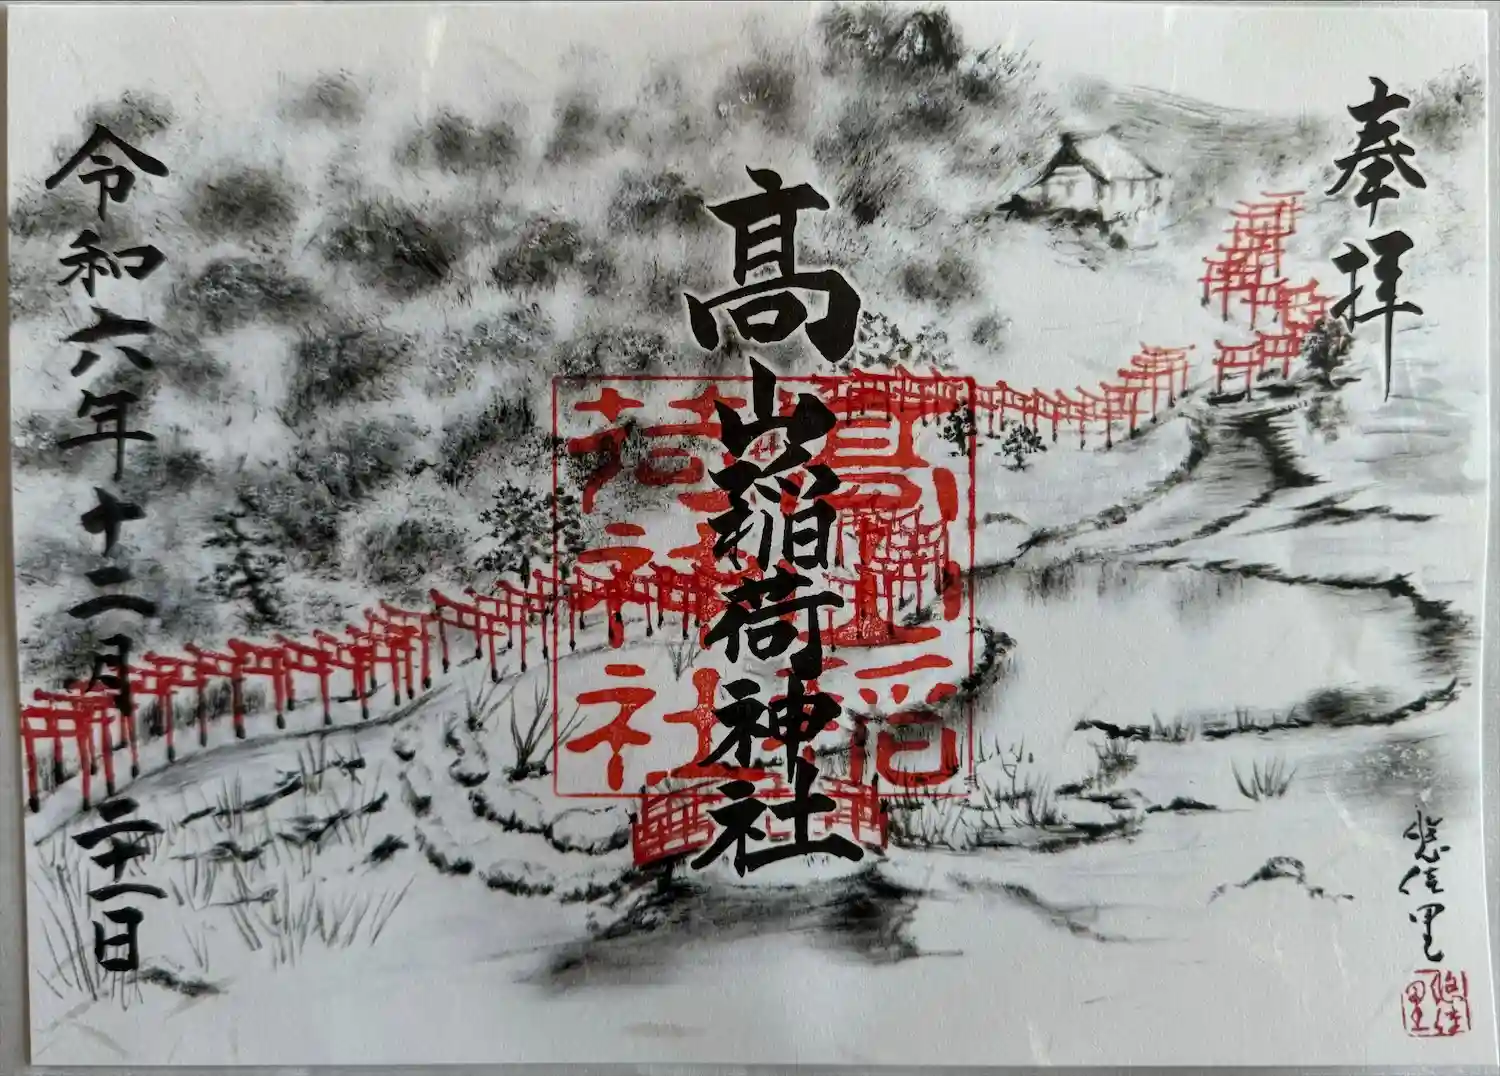 奉拝
髙山稲荷神社
令和六年十二月二十一日
悠佳里
髙山稲
荷神社
悠佳里